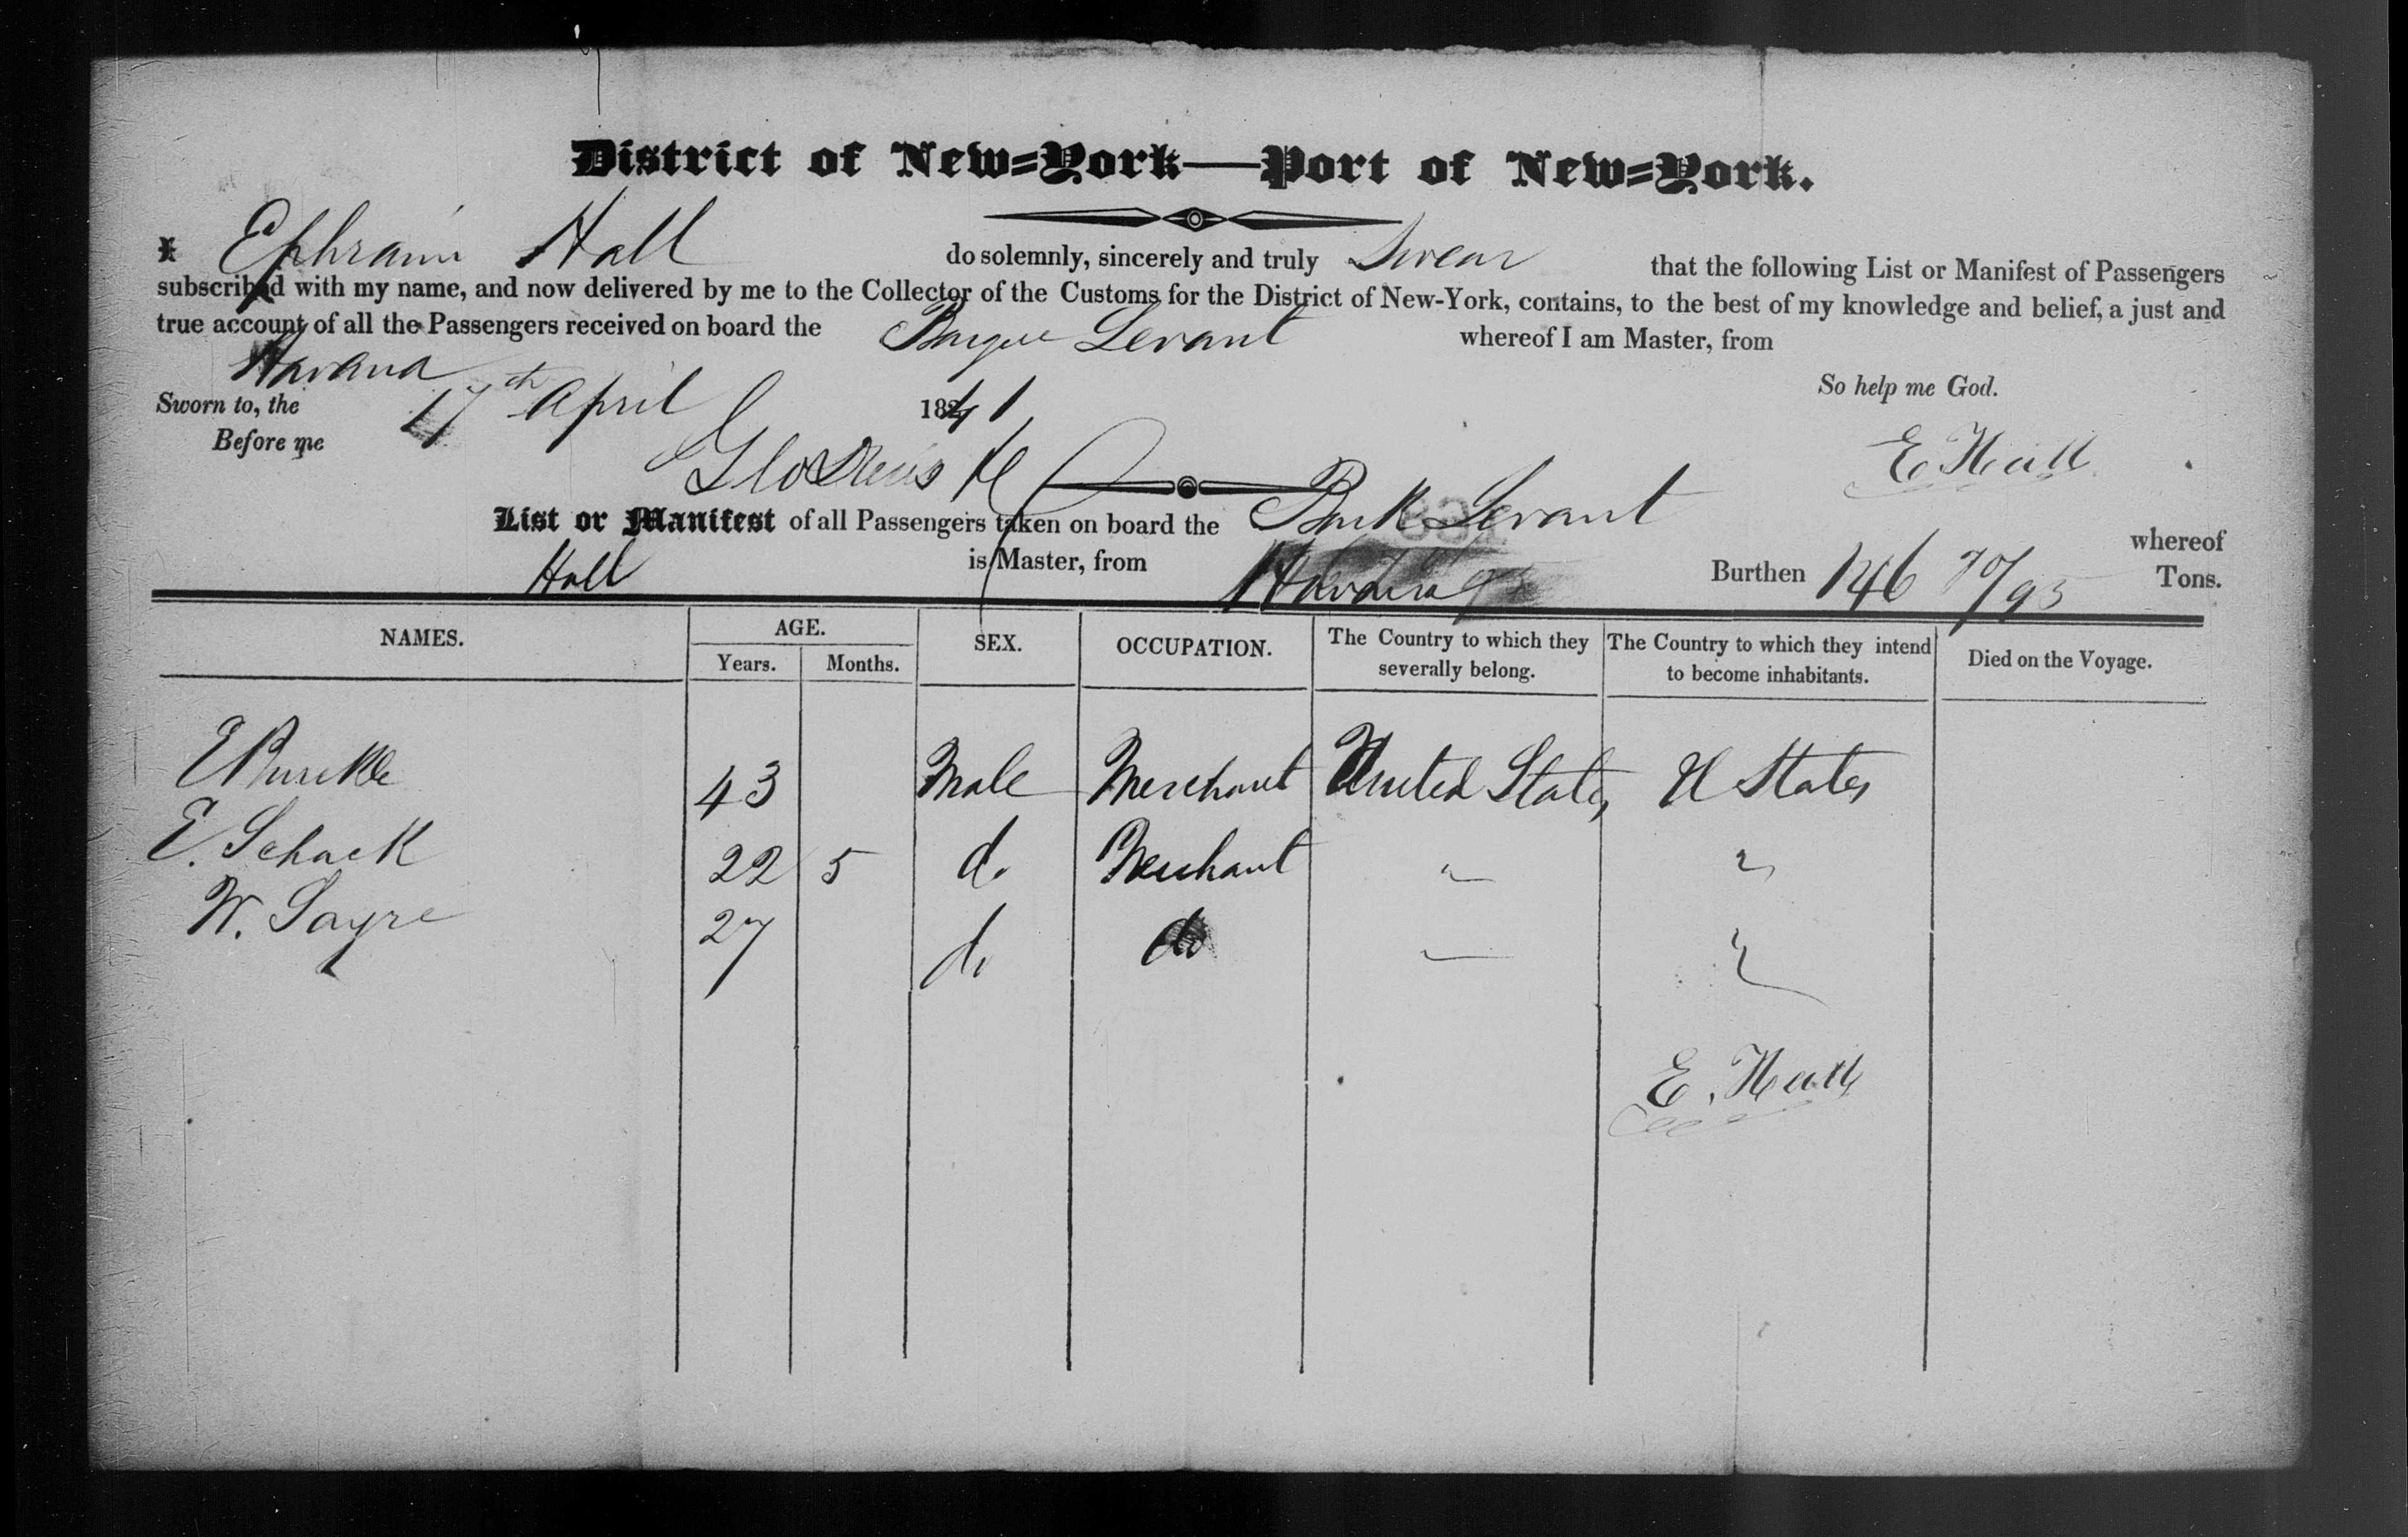 District of New=York—Port of New=York.
I Ephraim Hall do solemnly, sincerely and truly Swear that the following List or Manifest of Passengers
subscribed with my name, and now delivered by me to the Collector of the Customs for the District of New-York, contains, to the best of my knowledge and belief, a just and
true account of all the Passengers received on board the Barque Levant whereof I am Master, from
Havana
So help me God.
Sworn to, the 17th April 1841
Before me
E Hall
List or Manifest of all Passengers taken on board the Bark Levant whereof
Hall is Master, from Havana Burthen 146 70/95 Tons.
NAMES. AGE. SEX. OCCUPATION. The Country to which they severally belong. The Country to which they intend to become inhabitants. Died on the Voyage.
Years. Months.
43 Male Merchant United States U States
E. Schack 22 5 do Merchant " "
W. Sayre 27 do do " "
E. Hall